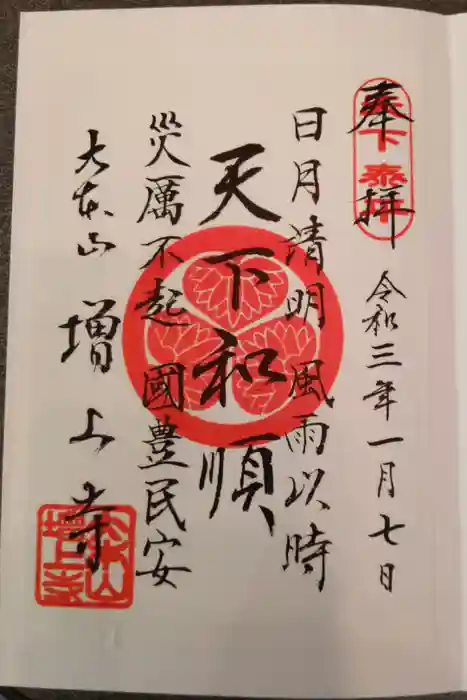 奉拝
令和三年一月七日
日月清明 風雨以時
天下和順
災厲不起 國豊民安
大本山 増上寺